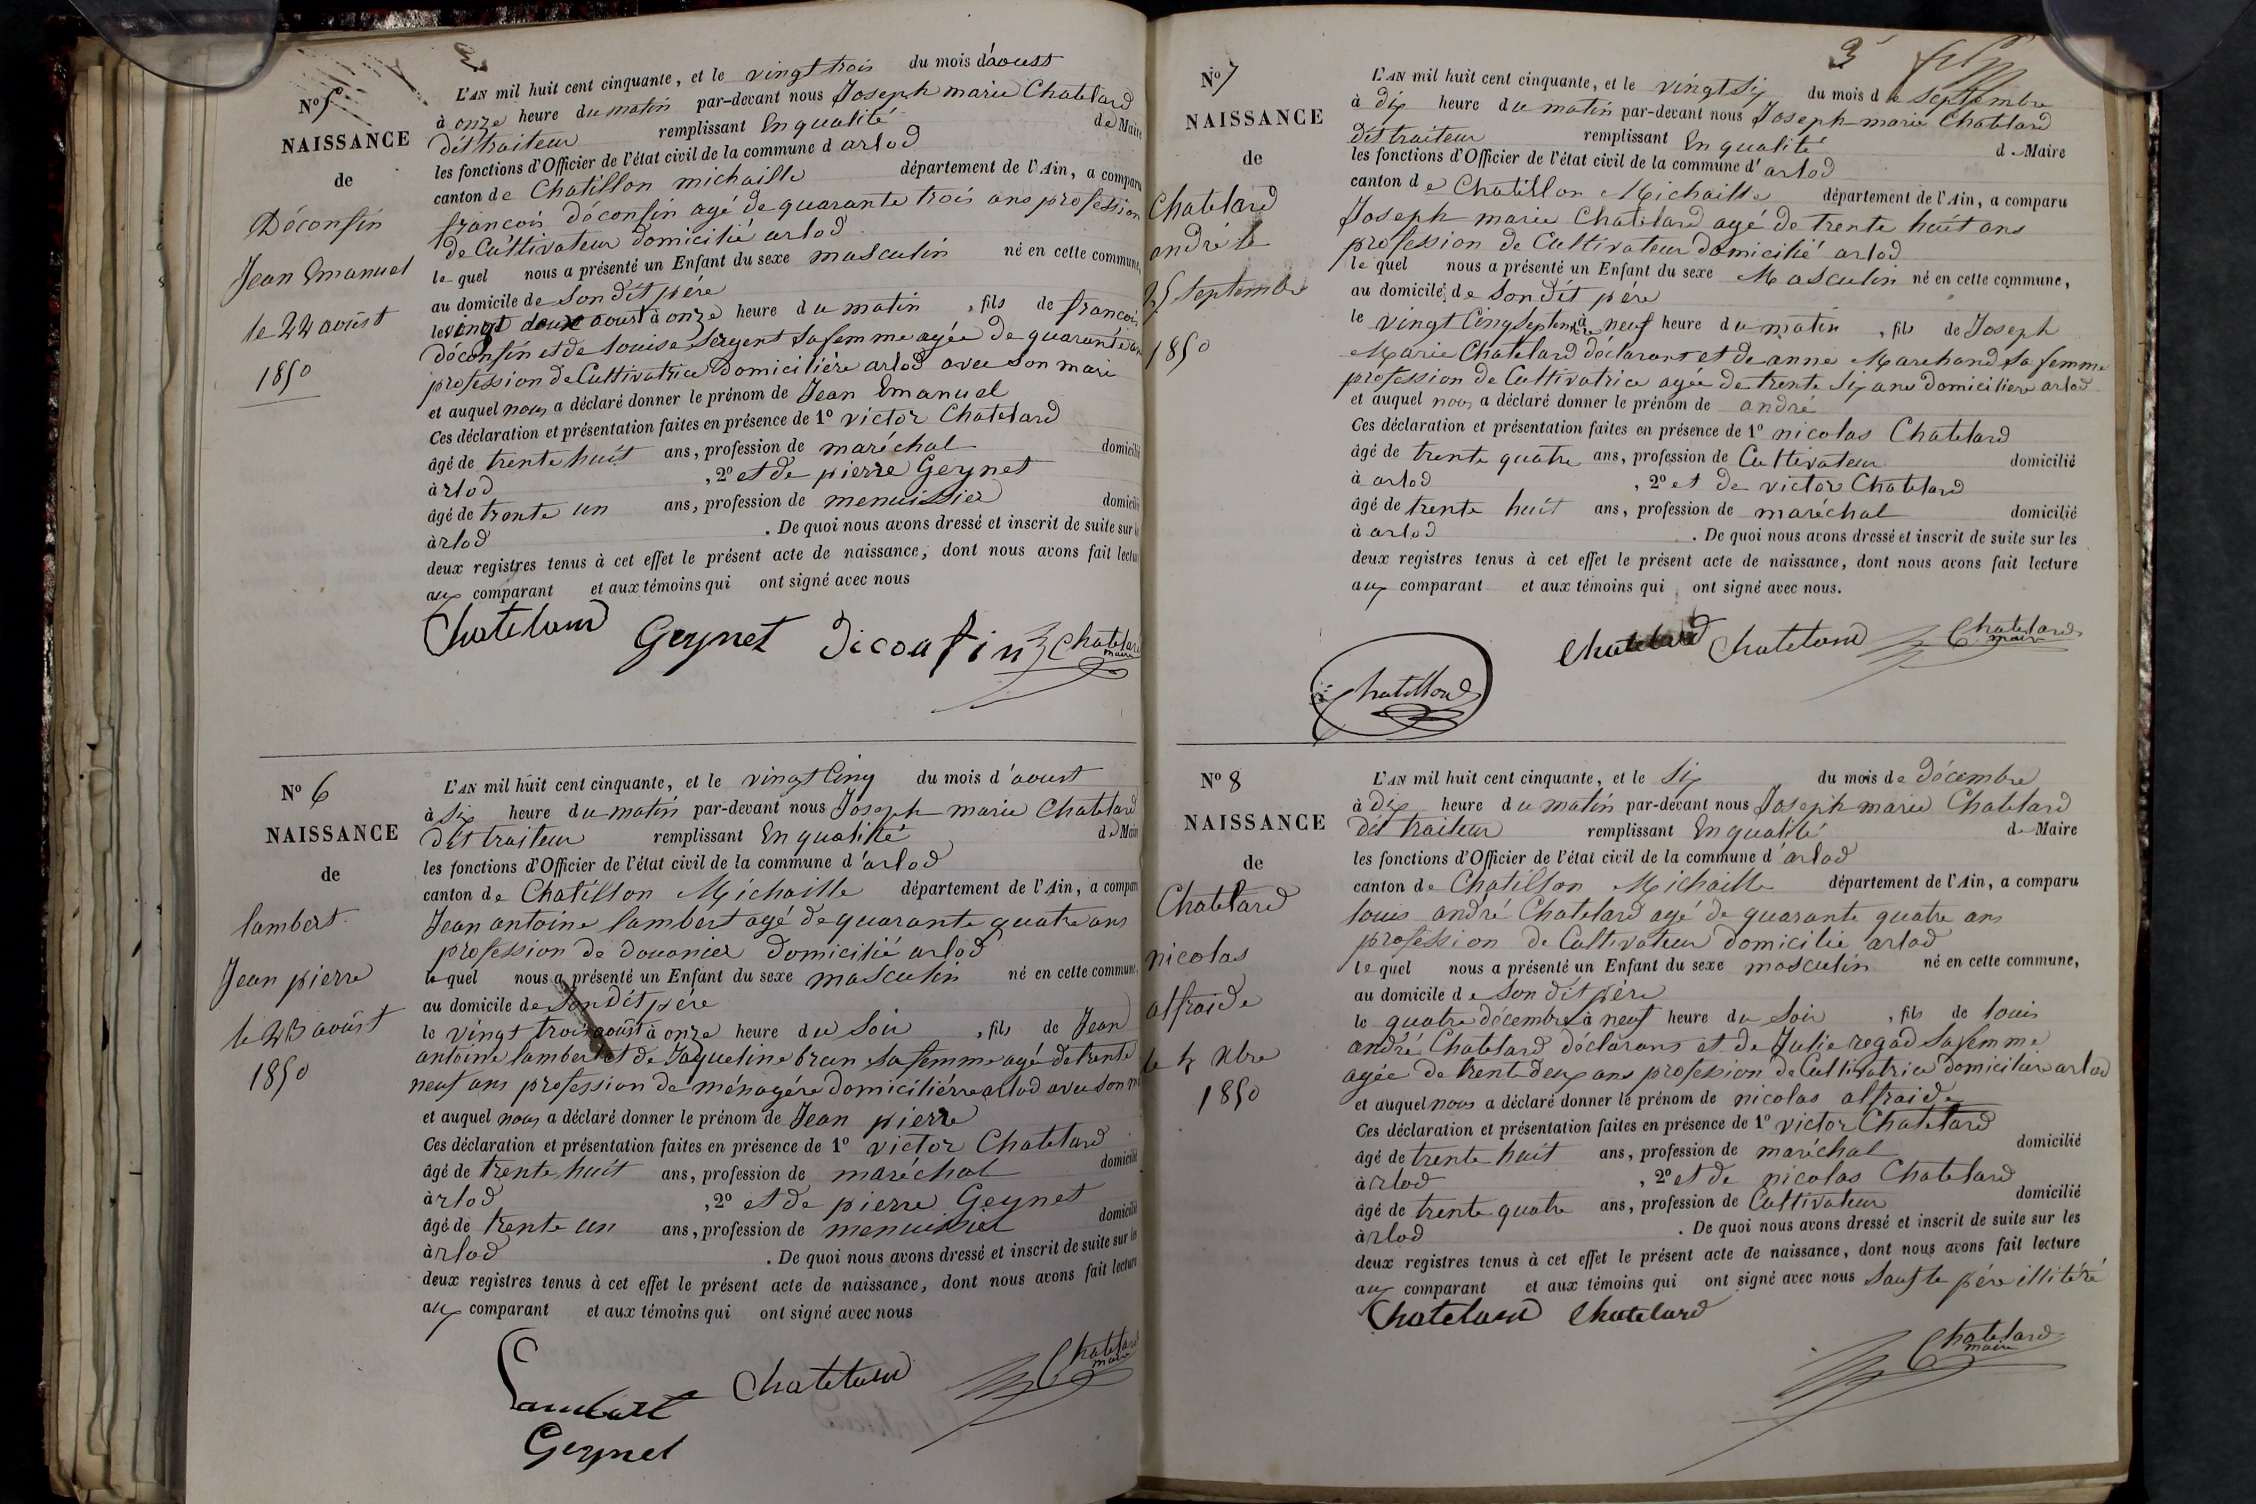 3
N° 5
NAISSANCE
de
Déconfin
Jean Emanuel
le 22 août
1850
L'AN mil huit cent cinquante, et le vingt trois du mois d'aoust
à onze heure du matin par-devant nous Joseph marie Chatelard
dit traiteur remplissant En qualité de Maire
les fonctions d'Officier de l'état civil de la commune d arlod
canton de Chatillon michaille département de l'Ain, a comparu
francois déconfin agé de quarante trois ans profession
de Cultivateur domicilié arlod
le quel nous a présenté un Enfant du sexe masculin né en cette commune,
au domicile de Son dit père
le vingt deux aoust à onze heure du matin , fils de francois
déconfin et de Louise Sergent Sa femme agée de quarante ans
profession de Cultivatrice domicilière arlod avec Son mari
et auquel nous a déclaré donner le prénom de Jean Emanuel
Ces déclaration et présentation faites en présence de 1° victor Chatelard
âgé de trente huit ans, profession de maréchal domicilié
à rlod , 2° et de pierre Geynet
âgé de trente un ans, profession de menuissier domicilié
à rlod . De quoi nous avons dressé et inscrit de suite sur les
deux registres tenus à cet effet le présent acte de naissance, dont nous avons fait lecture
aux comparant et aux témoins qui ont signé avec nous
Chatelard Geynet Dicoafin Chatelard
maire
N° 6
NAISSANCE
de
lambert
Jean pierre
le 23 août
1850
L'AN mil huit cent cinquante, et le vingt Cinq du mois d'aoust
à Six heure du matin par-devant nous Joseph marie Chatelard
dit traiteur remplissant En qualité de Maire
les fonctions d'Officier de l'état civil de la commune d'arlod
canton de Chatillon Michaille département de l'Ain, a comparu
Jean antoine lambert agé de quarante quatre ans
profession de douanier domicilié arlod
le quel nous a présenté un Enfant du sexe masculin né en cette commune,
au domicile de Son dit père
le vingt trois août à onze heure du Soir , fils de Jean
antoine lambert et de Jaqueline brun Sa femme agé de trente
neuf ans profession de ménagère domicilière arlod avec Son
et auquel nous a déclaré donner le prénom de Jean pierre
Ces déclaration et présentation faites en présence de 1° victor Chatelard
âgé de trente huit ans, profession de maréchal domicilié
à rlod , 2° et de pierre Geynet
âgé de trente un ans, profession de menuissier domicilié
à rlod . De quoi nous avons dressé et inscrit de suite sur les
deux registres tenus à cet effet le présent acte de naissance, dont nous avons fait lecture
aux comparant et aux témoins qui ont signé avec nous
Lambert Chatelard Chatelard
maire
Geynet
3
N° 7
NAISSANCE
de
Chatelard
andré le
25 Septembre
1850
L'AN mil huit cent cinquante, et le vingt Six du mois de Septembre
à dix heure du matin par-devant nous Joseph marie Chatelard
dit traiteur remplissant En qualité de Maire
les fonctions d'Officier de l'état civil de la commune d'arlod
canton de Chatillon Michaille département de l'Ain, a comparu
Joseph marie Chatelard agé de trente huit ans
profession de Cultivateur domicilié arlod
le quel nous a présenté un Enfant du sexe Masculin né en cette commune,
au domicile de Son dit père
le vingt Cinq Septembre à neuf heure du matin , fils de Joseph
Marie Chatelard déclarant et de anne Marchand Sa femme
profession de Cultivatrice agée de trente Six ans domiciliere arlod
et auquel nous a déclaré donner le prénom de andré
Ces déclaration et présentation faites en présence de 1° nicolas Chatelard
âgé de trente quatre ans, profession de Cultivateur domicilié
à arlod , 2° et de victor Chatelard
âgé de trente huit ans, profession de maréchal domicilié
à arlod . De quoi nous avons dressé et inscrit de suite sur les
deux registres tenus à cet effet le présent acte de naissance, dont nous avons fait lecture
aux comparant et aux témoins qui ont signé avec nous.
Chatelard Chatelard Chatelard
maire
Chatillard
N° 8
NAISSANCE
de
Chatelard
nicolas
alfraide
le 4 Xbre
1850
L'AN mil huit cent cinquante, et le Six du mois de décembre
à dix heure du matin par-devant nous Joseph marie Chatelard
dit traiteur remplissant En qualité de Maire
les fonctions d'Officier de l'état civil de la commune d'arlod
canton de Chatillon Michaille département de l'Ain, a comparu
louis andré Chatelard agé de quarante quatre ans
profession de Cultivateur domicilié arlod
le quel nous a présenté un Enfant du sexe masculin né en cette commune,
au domicile de Son dit père
le quatre décembre à neuf heure du Soir , fils de louis
andré Chatelard déclarans et de Julie regad Sa femme
agée de trente deux ans profession de Cultivatrice domiciliere arlod
et auquel nous a déclaré donner le prénom de nicolas alfraide
Ces déclaration et présentation faites en présence de 1° victor Chatelard
âgé de trente huit ans, profession de maréchal domicilié
à rlod , 2° et de nicolas Chatelard
âgé de trente quatre ans, profession de Cultivateur domicilié
à rlod . De quoi nous avons dressé et inscrit de suite sur les
deux registres tenus à cet effet le présent acte de naissance, dont nous avons fait lecture
aux comparant et aux témoins qui ont signé avec nous Sauf le père illitéré
Chatelard Chatelard
Chatelard
maire